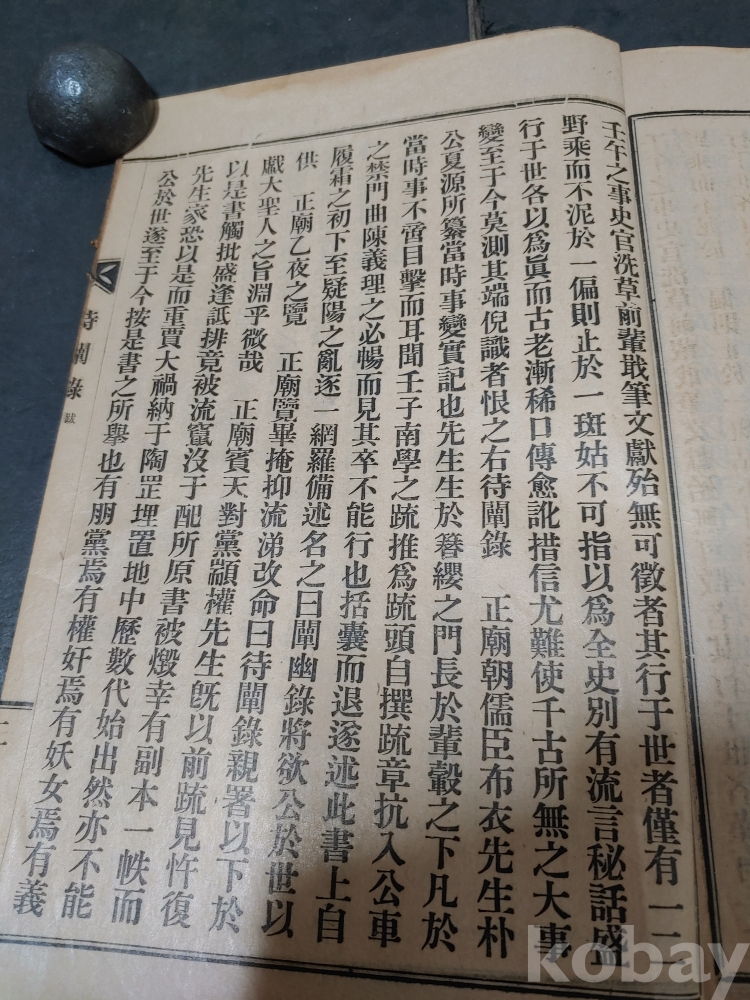 壬午之事史官洗草前輩戢筆文獻殆無可徵者其行于世者僅有一二
野乘而不泥於一偏則止於一斑姑不可指以爲全史別有流言秘話盛
行于世各以爲眞而古老漸稀口傳愈訛措信尤難使千古所無之大事
變至于今莫測其端倪識者恨之右待闡錄 正廟朝儒臣布衣先生朴
公夏源所纂當時事變實記也先生生於簪纓之門長於輦轂之下凡於
當時事不啻目擊而耳聞壬子南學之疏推爲疏頭自撰疏章抗入公車
之禁門曲陳義理之必暢而見其卒不能行也括囊而退遂述此書上自
履霜之初下至疑陽之亂逐一網羅備述名之曰闡幽錄將欲公於世以
供 正廟乙夜之覽 正廟覽畢掩抑流涕改命曰待闡錄親署以下於
戱大聖人之旨淵乎微哉 正廟賓天對黨顓權先生旣以前疏見忤復
以是書觸批盛逢詆排竟被流竄沒于配所原書被燬幸有副本一帙而
先生家恐以是而重賈大禍納于陶罡埋置地中歷數代始出然亦不能
公於世遂至于今按是書之所擧也有朋黨焉有權奸焉有妖女焉有義
待闡錄 跋
kobay